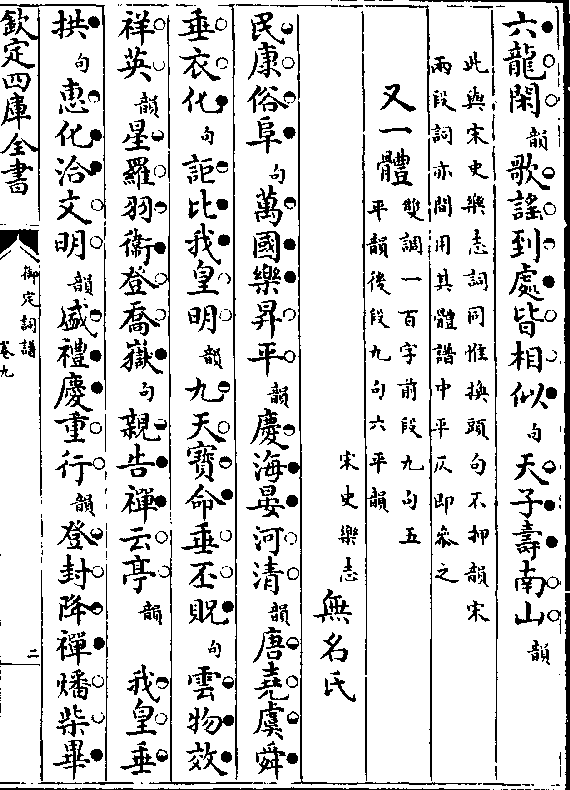 六龍閑韻歌謡到處皆相似句天子壽南山韻
此與宋史樂志詞同惟換頭句不押韻宋
兩段詞亦間用其體譜中平仄即叅之
又一體雙調一百字前段九句五
平韻後段九句六平韻
宋史樂志無名氏
民康俗阜句萬國樂昇平韻慶海晏河清韻唐堯虞舜
垂衣化句詎比我皇明韻九天寶命垂丕貺句雲物效
祥英韻星羅羽衛登喬嶽句親告禪云亭韻我皇垂
拱句惠化洽文明韻盛禮慶重行韻登封降禪燔柴畢
欽定四庫全書
御定詞譜
卷九
二